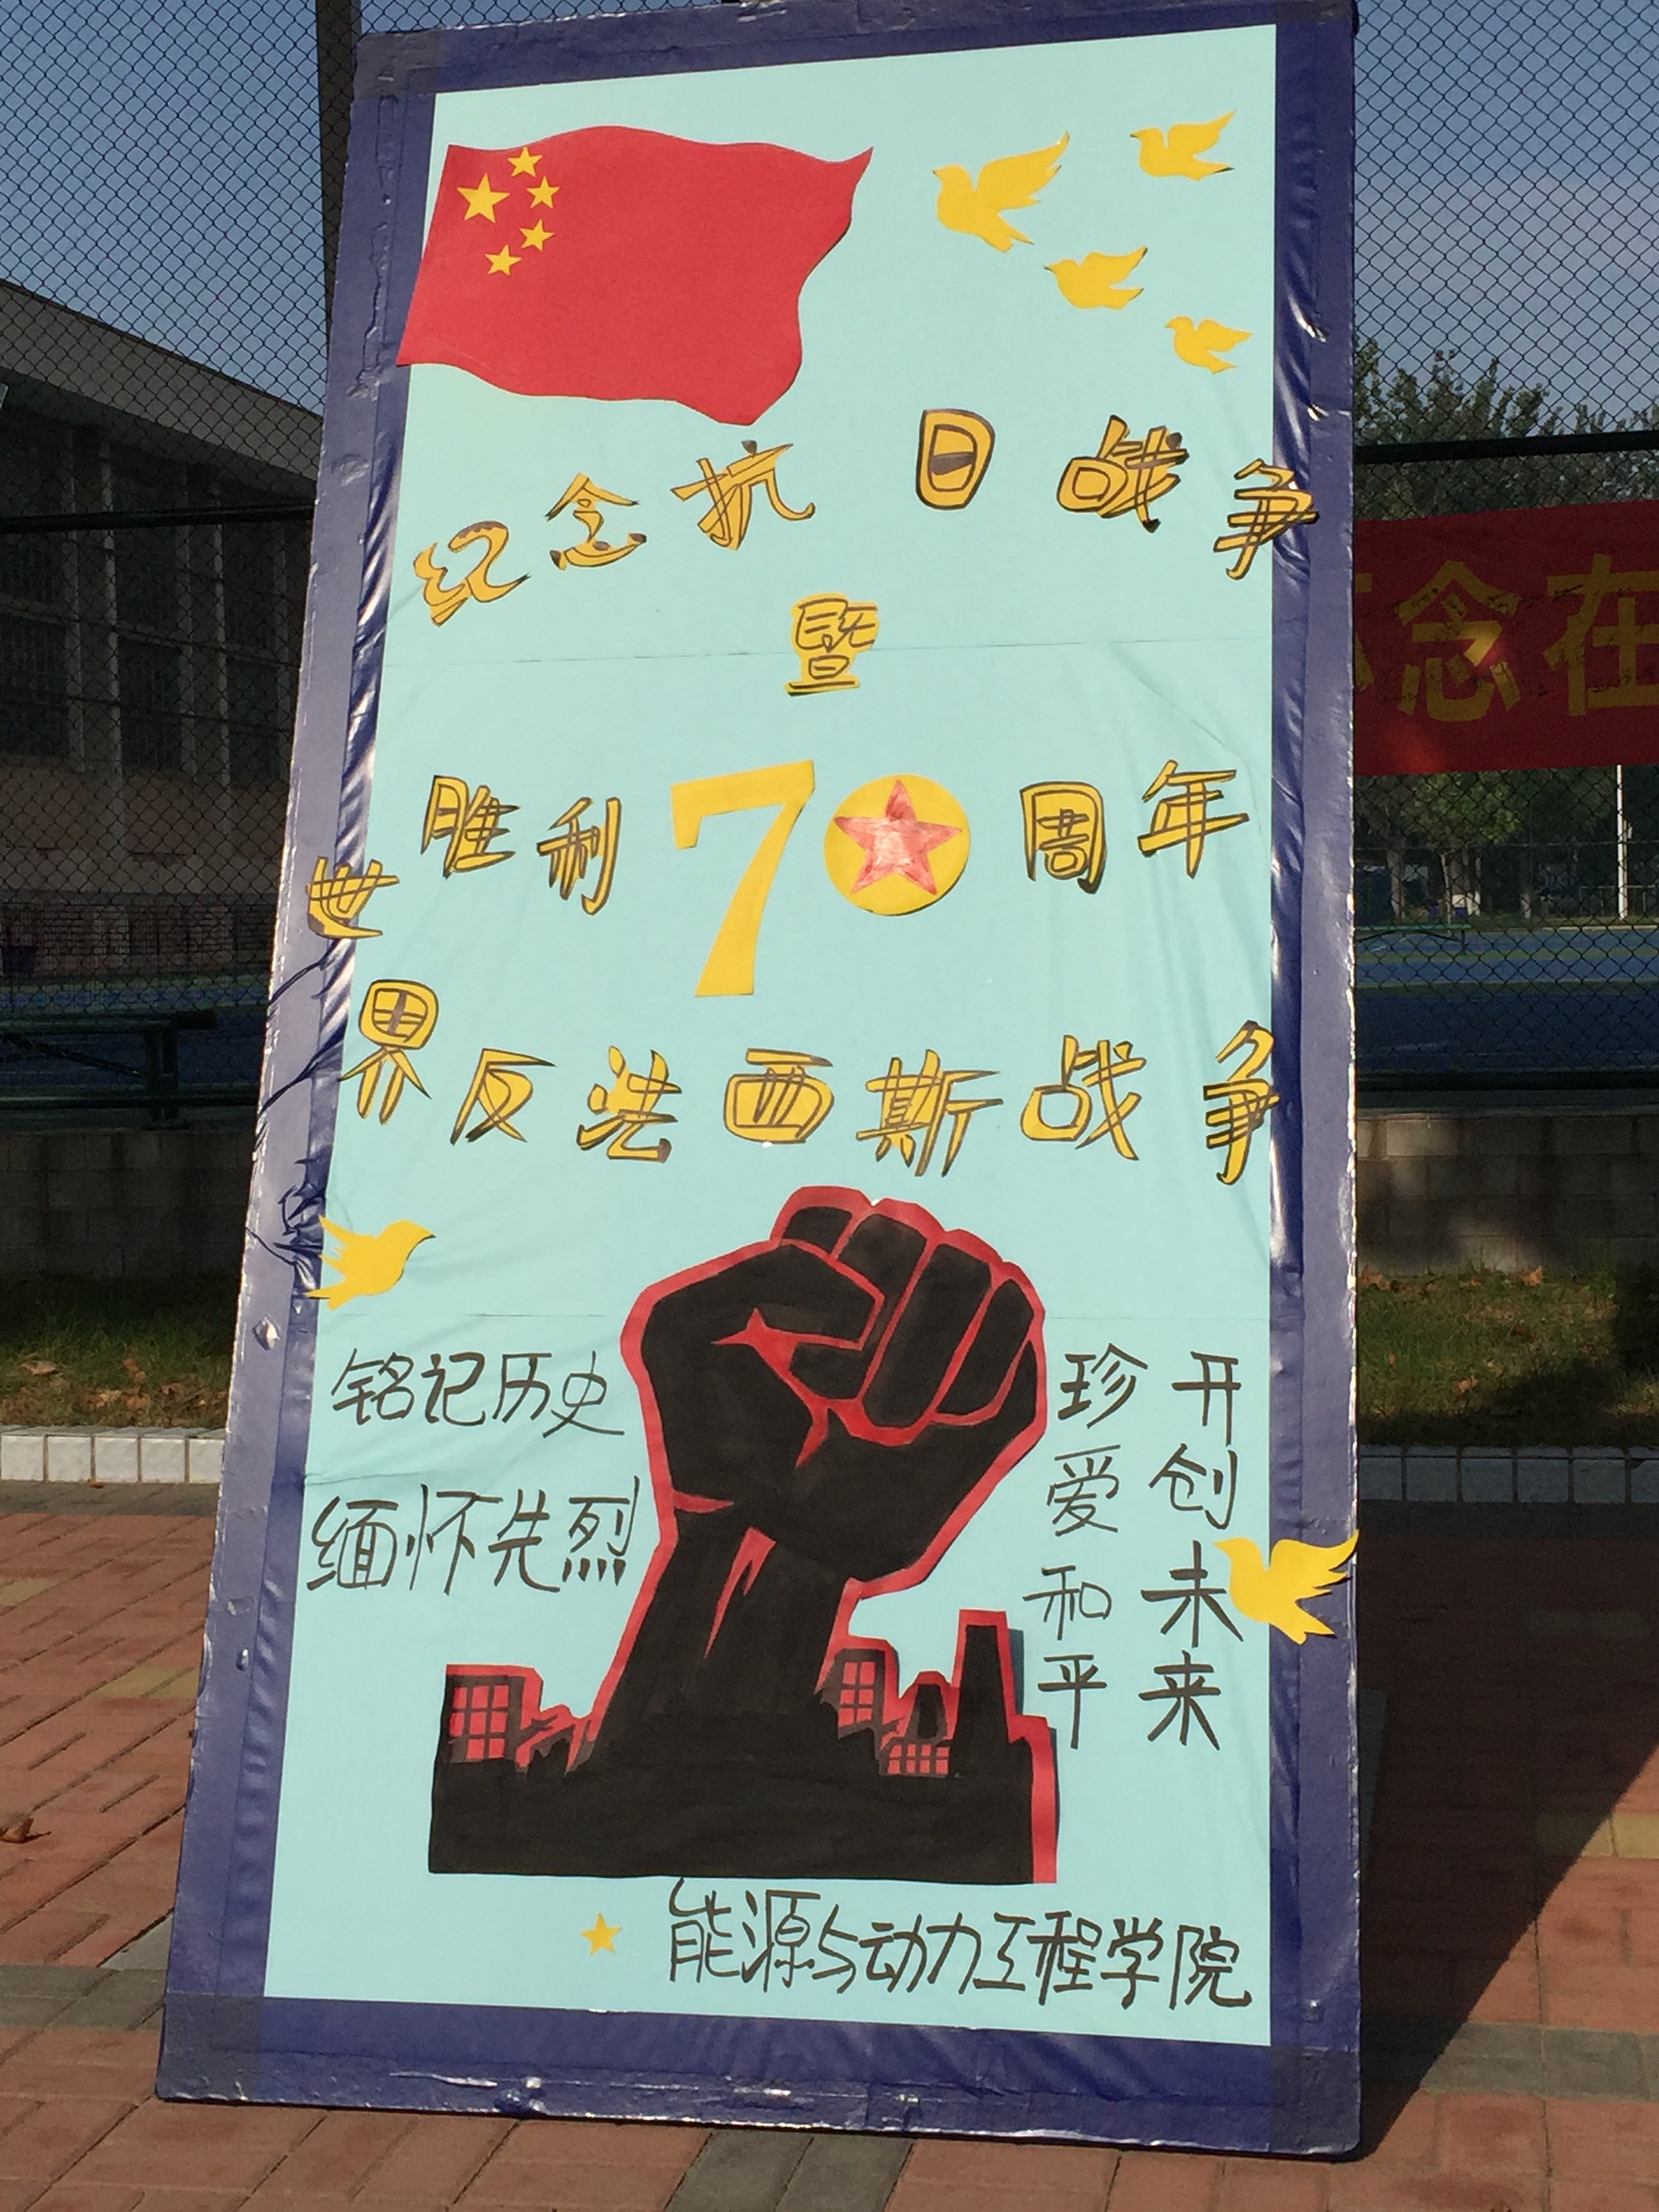 纪念抗日战争
暨
胜利70周年
世界反法西斯战争
铭记历史
缅怀先烈
珍爱和平
开创未来
能源与动力工程学院
念在